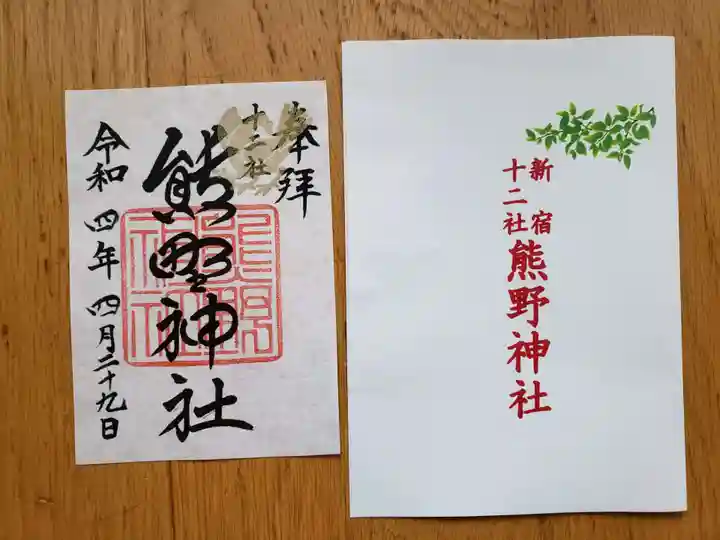 奉拝
十二社
熊野神社
令和四年四月二十九日
新宿
十二社
熊野神社